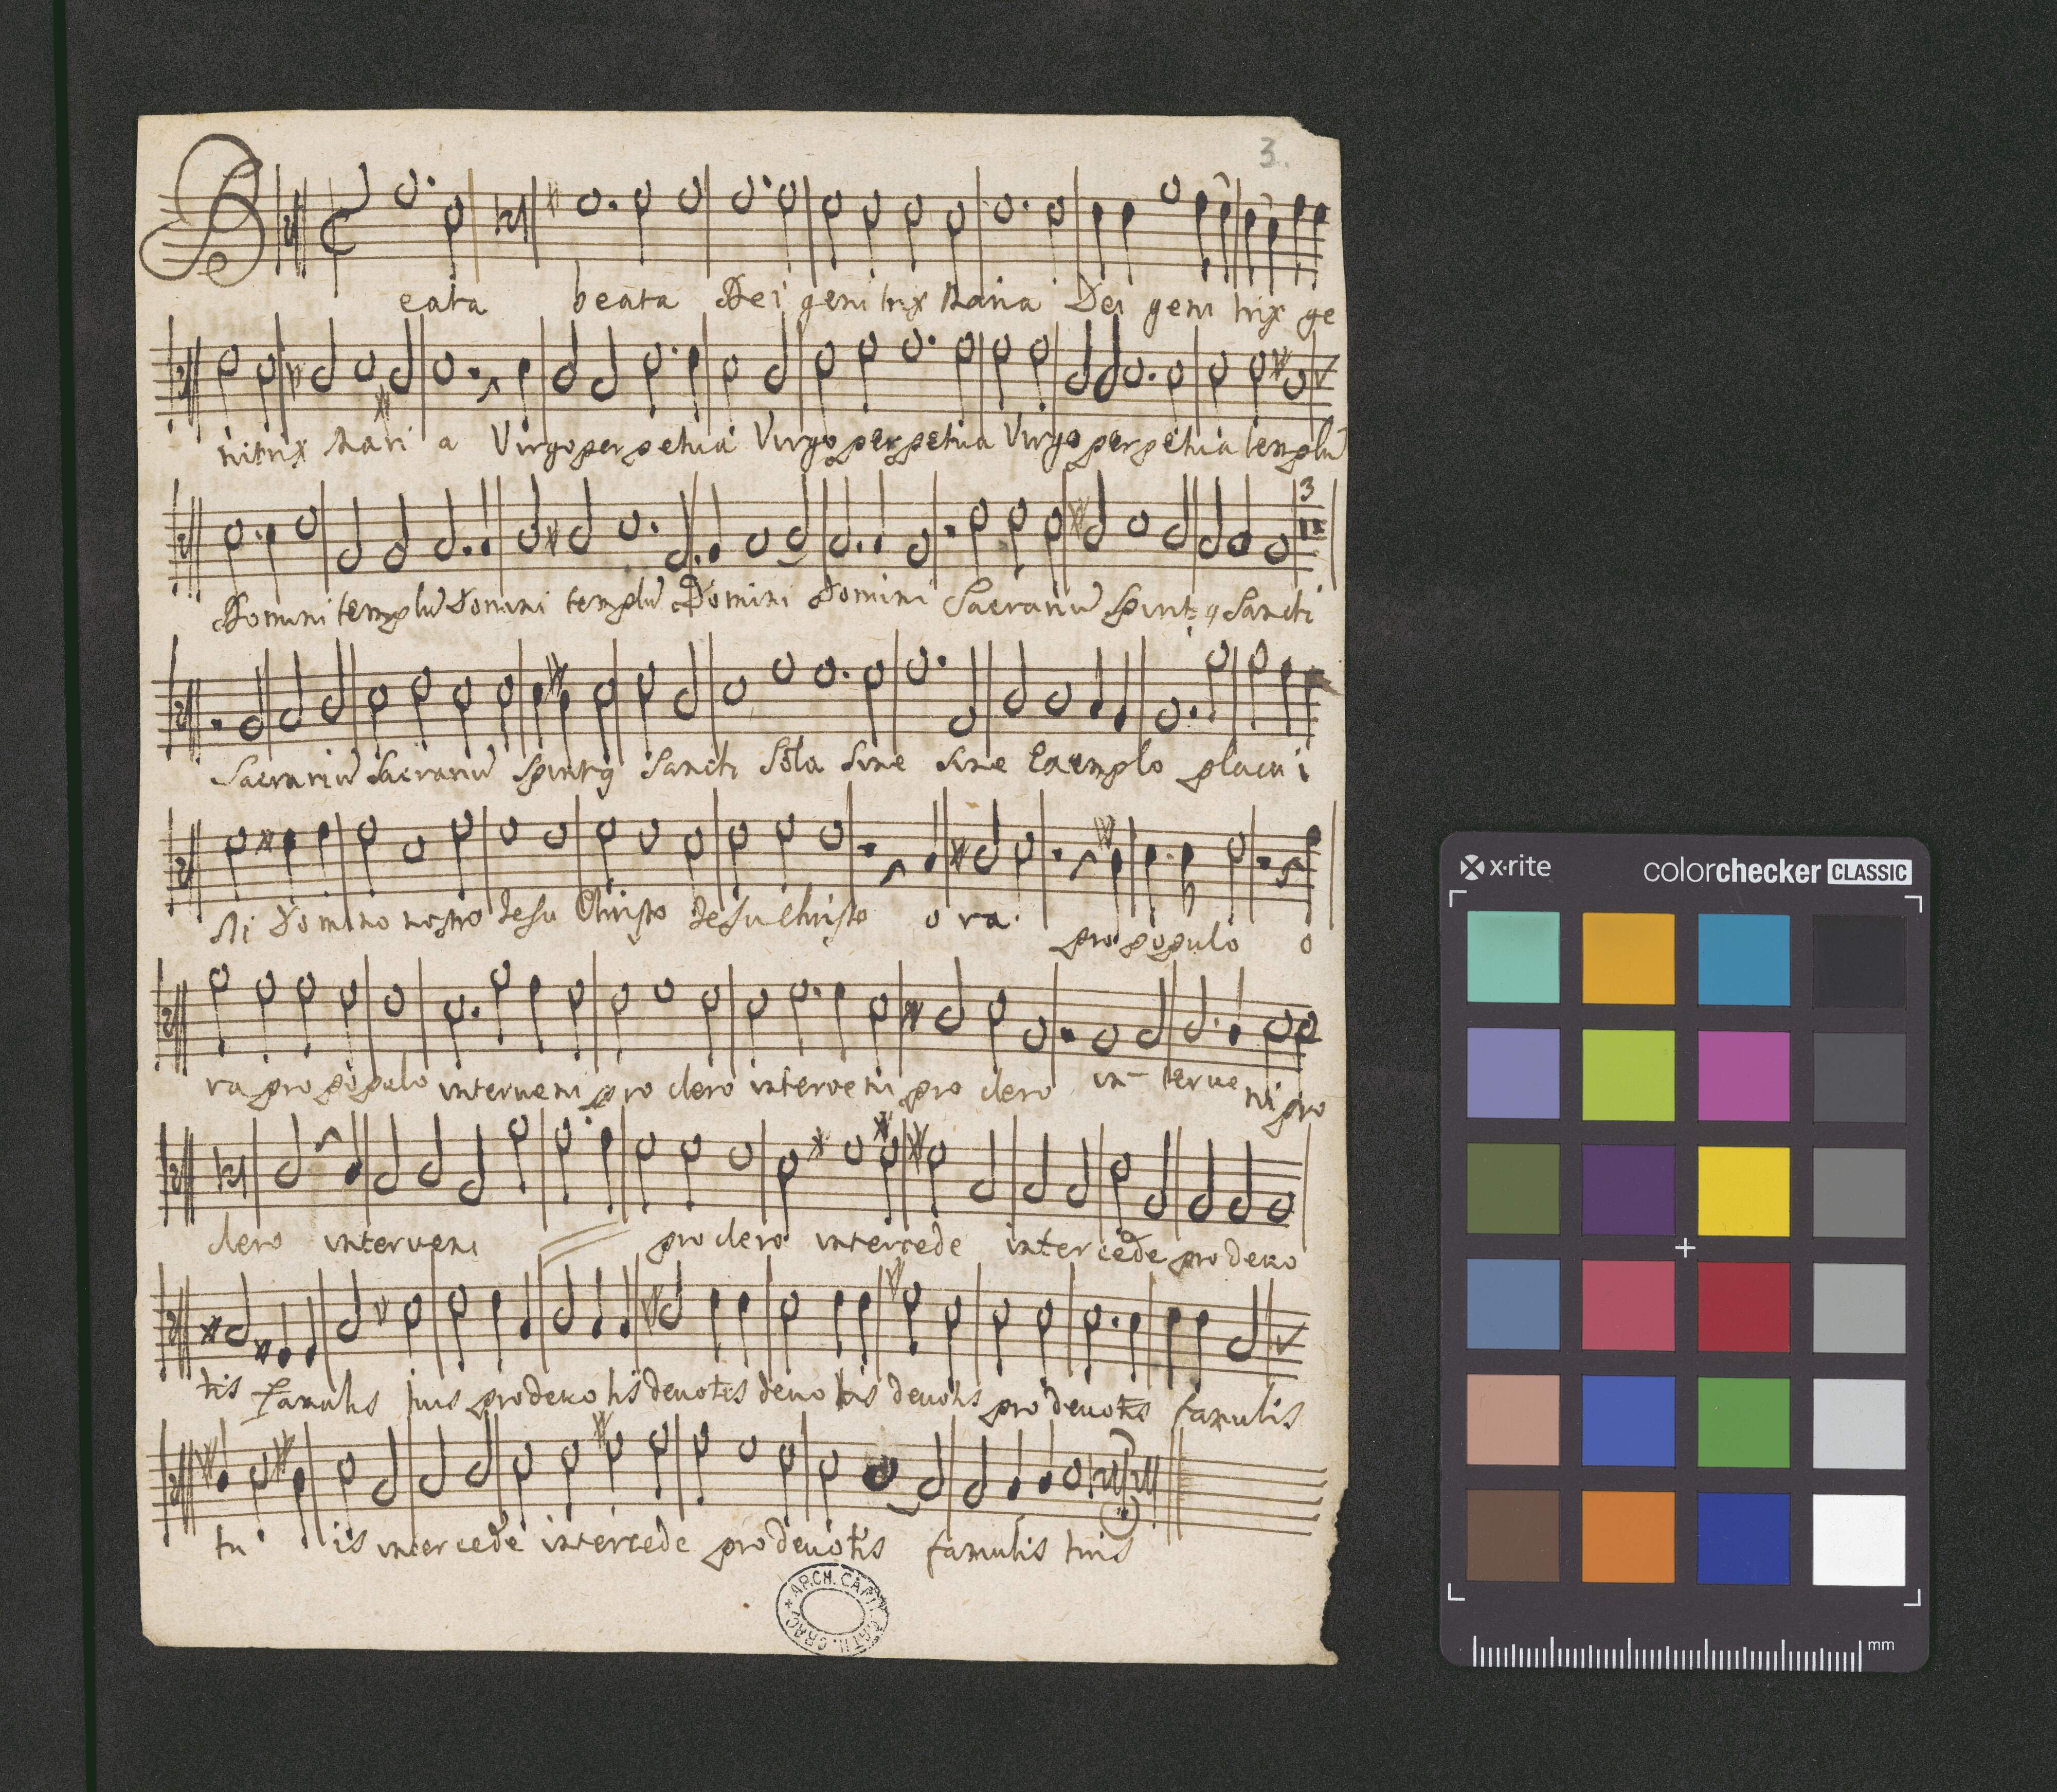 3.
Beata beata Dei geni trix Maria Dei geni trix ge
nitrix Mari a Virgo perpetua Virgo perpetua Virgo perpetua templū
Domini templū Domini templū Domini Domini Sacrariū Spirit9 Sancti
3
Sacrariū Sacrariū Spirit9 Sancti Sola sine sine Exemplo placui
sti Domino nostro Jesu Christo Jesu Christo o ra pro populo o
ra pro populo interveni pro clero interveni pro clero in- terue ni pro
clero interueni pro clero intercede intercede pro devo
tis famulis tuis pro devo tis devotis devo tis devotis pro devotis famulis
tu is intercede intercede pro devotis famulis tuis
ARCH. CAPIT. CATH. CRAC.
x·rite
colorchecker CLASSIC
mm